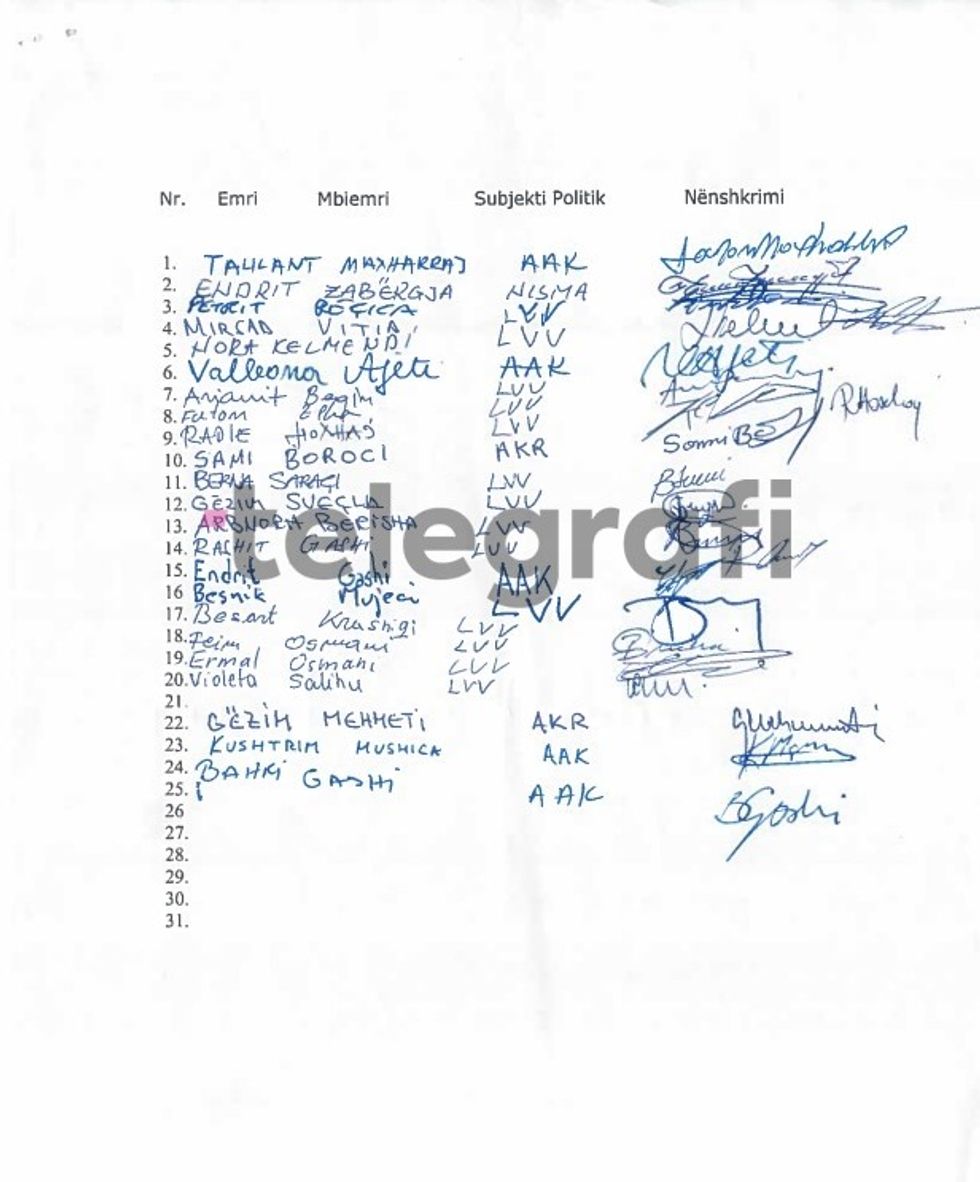 Nr. Emri Mbiemri Subjekti Politik Nënshkrimi
1. TAULANT MAXHARRAJ AAK
2. ENDRIT ZABËRGJA NISMA
3. PETRIT BEÇICA LVV
4. MIRSAD VITIA LVV
5. NORA KELMENDI
6. Valleona Ajeti AAK
7. Arjanit LVV
8. Faton LVV
9. RADIE HOXHAJ LVV RHoxhaj
10. SAMI BOROCI AKR Sami Bo
11. BERNA SARAÇI LVV
12. GËZIM SVEÇLA LVV
13. ARBNORA BERISHA LVV
14. RASHIT GASHI LVV
15. Endrit Gashi AAK
16 Besnik Mujeci LVV
17. Besart Krashiqi LVV
18. Feim Osmani LVV
19. Ermal Osmani LVV
20. Violeta Salihu LVV
21.
22. GËZIM MEHMETI AKR
23. KUSHTRIM MUSHICA AAK
24. BAHRI GASHI AAK BGashi
25.
26
27.
28.
29.
30.
31.
telegrafi